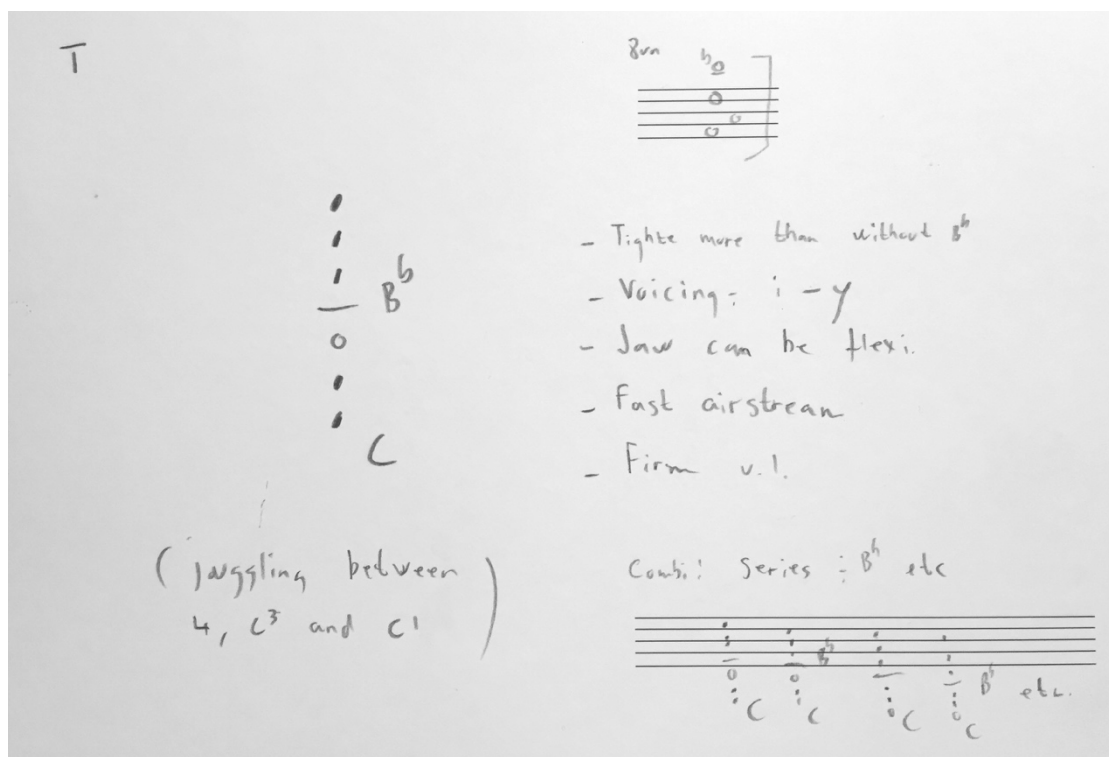 T
8va
b
B♭
C
- Tighte more than without B♭
- Voicing: i - y
- Jaw can be flexi.
- Fast airstream
- Firm u.l.
( juggling between
4, C³ and C¹ )
Combi: Series : B♭ etc
B♭ B♭ etc.
C C C C